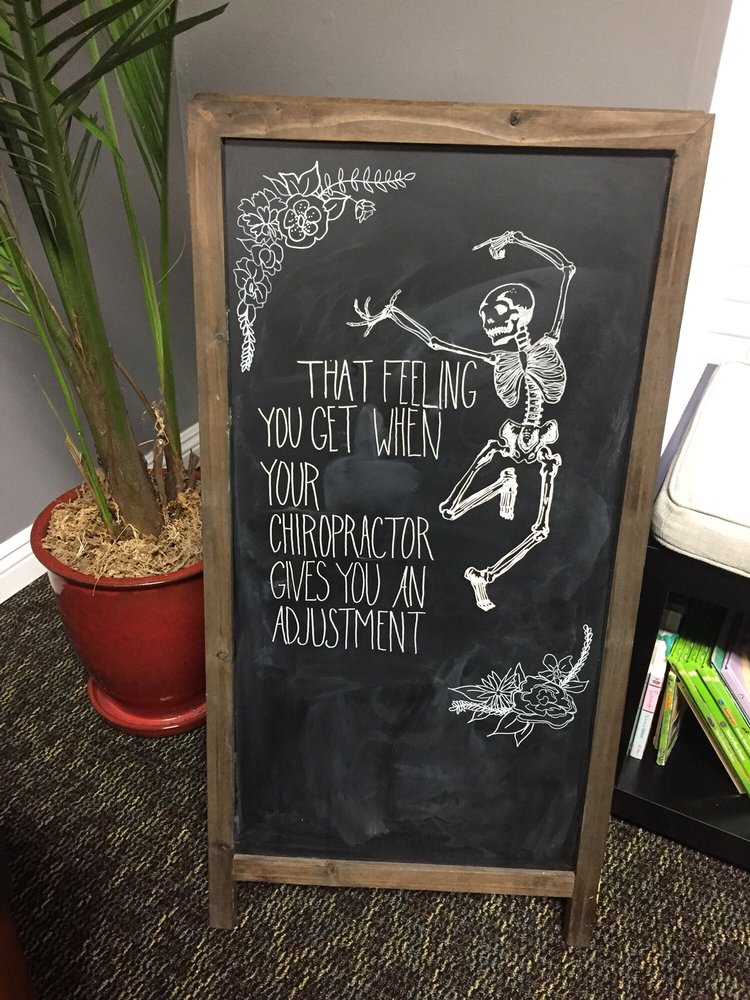 THAT FEELING
YOU GET WHEN
YOUR
CHIROPRACTOR
GIVES YOU AN
ADJUSTMENT